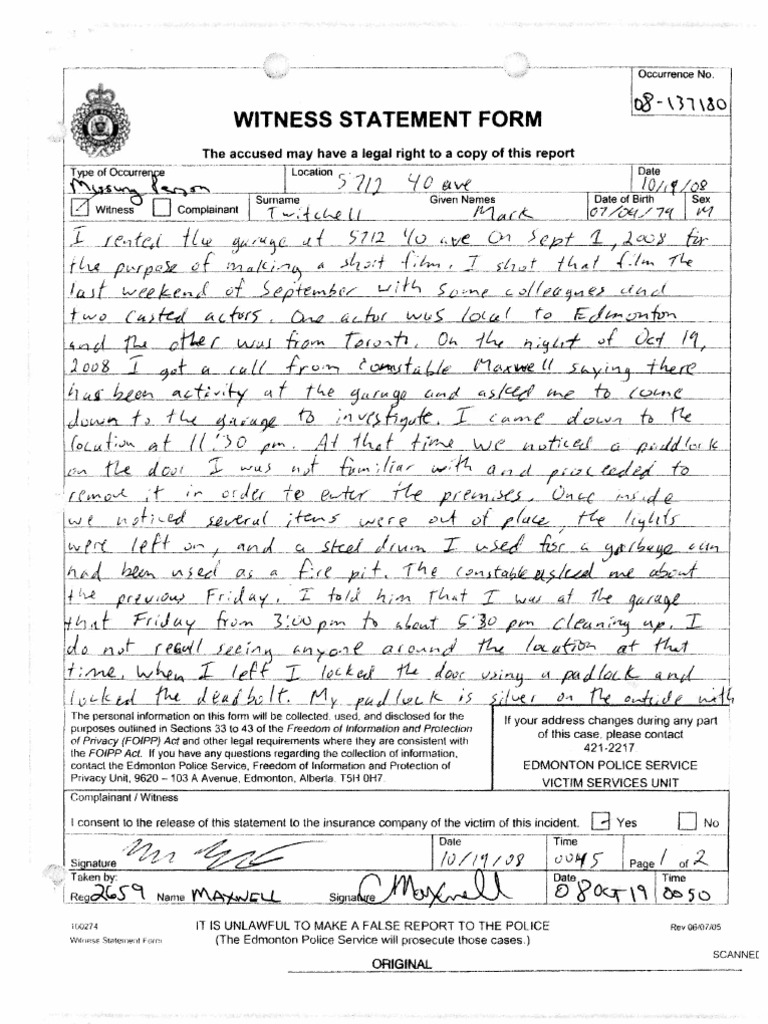 Occurrence No.
08-137180
WITNESS STATEMENT FORM
The accused may have a legal right to a copy of this report
Type of Occurrence Location 5712 40 ave Date
Missing Person 10/19/08
Witness Complainant Surname Given Names Date of Birth Sex
Twitchell Mark 07/04/79 M
I rented the garage at 5712 40 ave on Sept 1, 2008 for
the purpose of making a short film. I shot that film the
last weekend of September with some colleagues and
two casted actors. One actor was local to Edmonton
and the other was from Toronto. On the night of Oct 19,
2008 I got a call from Constable Maxwell saying there
has been activity at the garage and asked me to come
down to the garage to investigate. I came down to the
location at 11:30 pm. At that time we noticed a paddlock
on the door I was not familiar with and proceeded to
remove it in order to enter the premises. Once inside
we noticed several items were out of place, the lights
were left on, and a steel drum I used for a garbage can
had been used as a fire pit. The constable asked me about
the previous Friday. I told him that I was at the garage
that Friday from 3:00 pm to about 5:30 pm cleaning up. I
do not recall seeing anyone around the location at that
time. When I left I locked the door using a padlock and
locked the deadbolt. My padlock is silver on the outside with
The personal information on this form will be collected, used, and disclosed for the
purposes outlined in Sections 33 to 43 of the Freedom of Information and Protection
of Privacy (FOIPP) Act and other legal requirements where they are consistent with
the FOIPP Act. If you have any questions regarding the collection of information,
contact the Edmonton Police Service, Freedom of Information and Protection of
Privacy Unit, 9620 – 103 A Avenue, Edmonton, Alberta. T5H 0H7.
If your address changes during any part
of this case, please contact
421-2217.
EDMONTON POLICE SERVICE
VICTIM SERVICES UNIT
Complainant / Witness
I consent to the release of this statement to the insurance company of the victim of this incident. Yes No
Signature Date 10/19/08 Time 0045 Page 1 of 2
Taken by:
Reg 2659 Name MAXWELL Signature CMaxwell Date 08 OCT 19 Time 0050
100274
Witness Statement Form
IT IS UNLAWFUL TO MAKE A FALSE REPORT TO THE POLICE
(The Edmonton Police Service will prosecute those cases.)
Rev 06/07/05
SCANNED
ORIGINAL